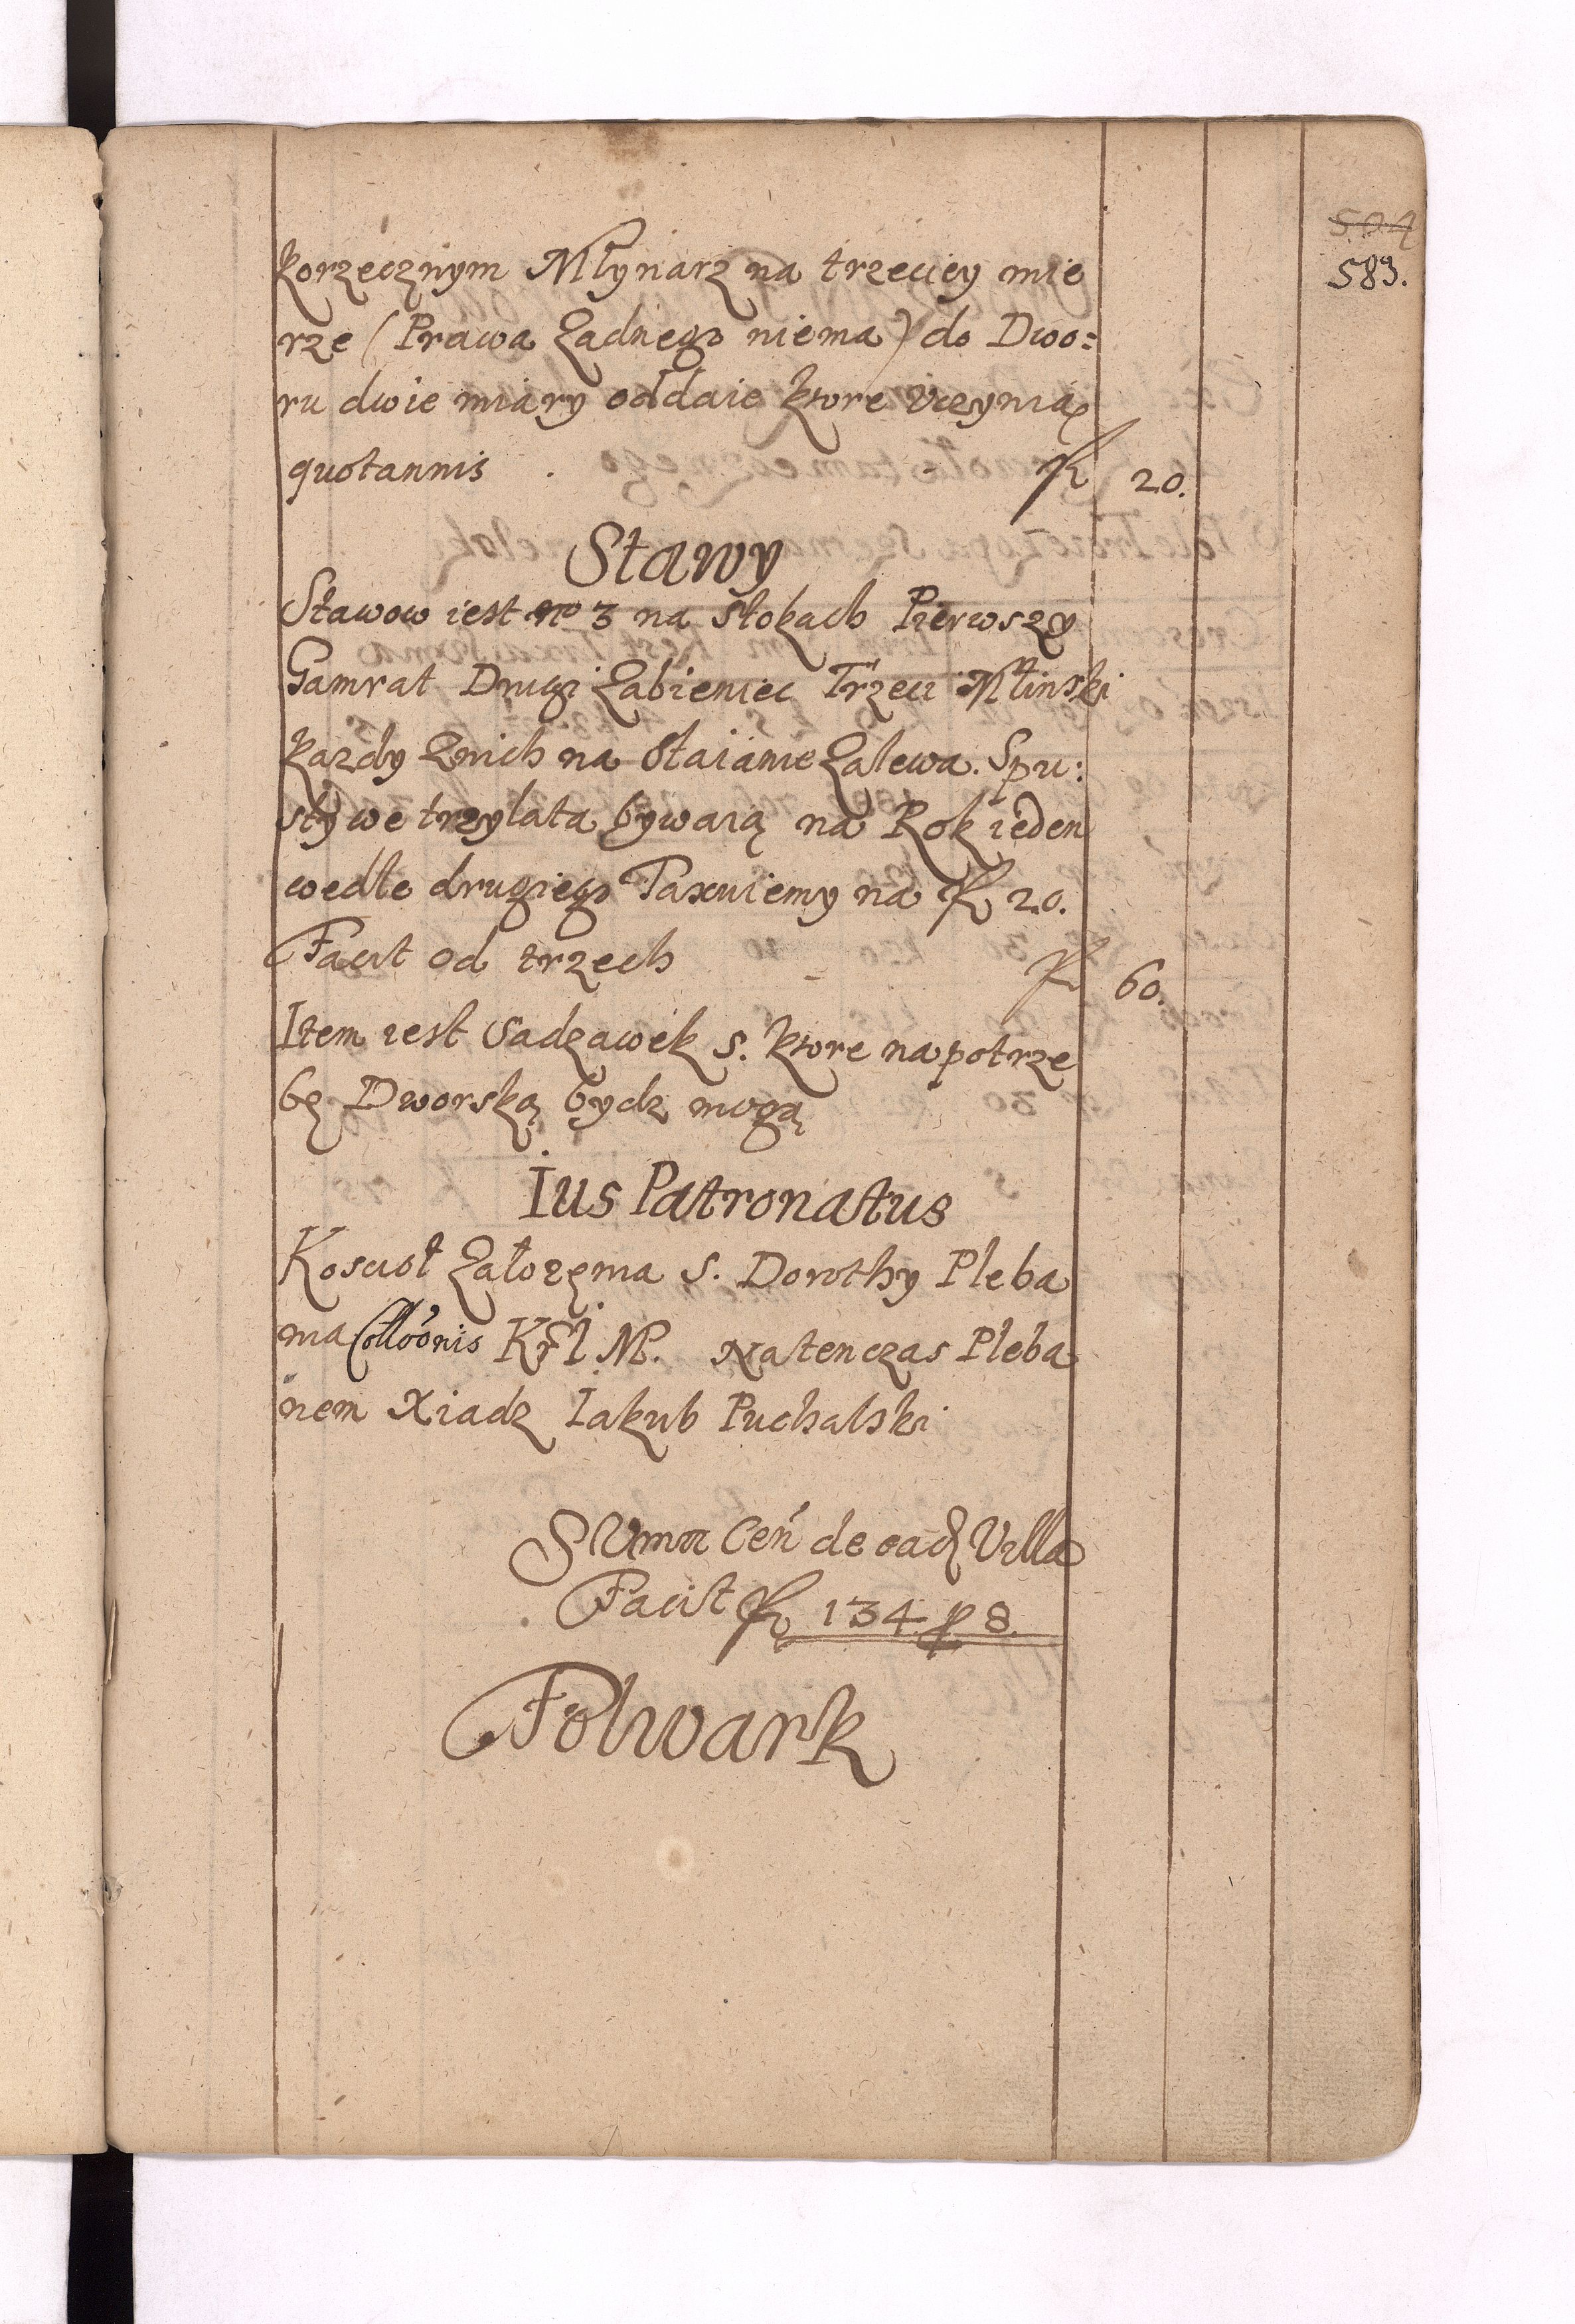 504
583.
korzecznym Młynarz na trzeciey mie
rze (Prawa Zadnego niema) do Dwo:
ru dwie miary oddaie ktore Vczynią
quotannis . - fl 20.
Stawy
Stawow iest nro 3 na stokach Pierwszy
Gamrat Drugi Zabieniec Trzeci Młinski
kazdy Znich na staianie Zalewa. Spu:
sty we trzy lata bywaią na Rok ieden
wedle drugiego Taxuiemy na fl 20.
Facit od trzech - fl 60.
Item iest Sadzawek 5. ktore na potrze
bę Dworską bydz mogą
Ius Patronatus
Koscioł Załozenia S. Dorothy Pleba
nia Collōnis Krl M. Natenczas Pleba
nem Xiadz Iakub Puchalski
Suma Cen de eadl Villa
Facit fl 134 g 8.
Folwark